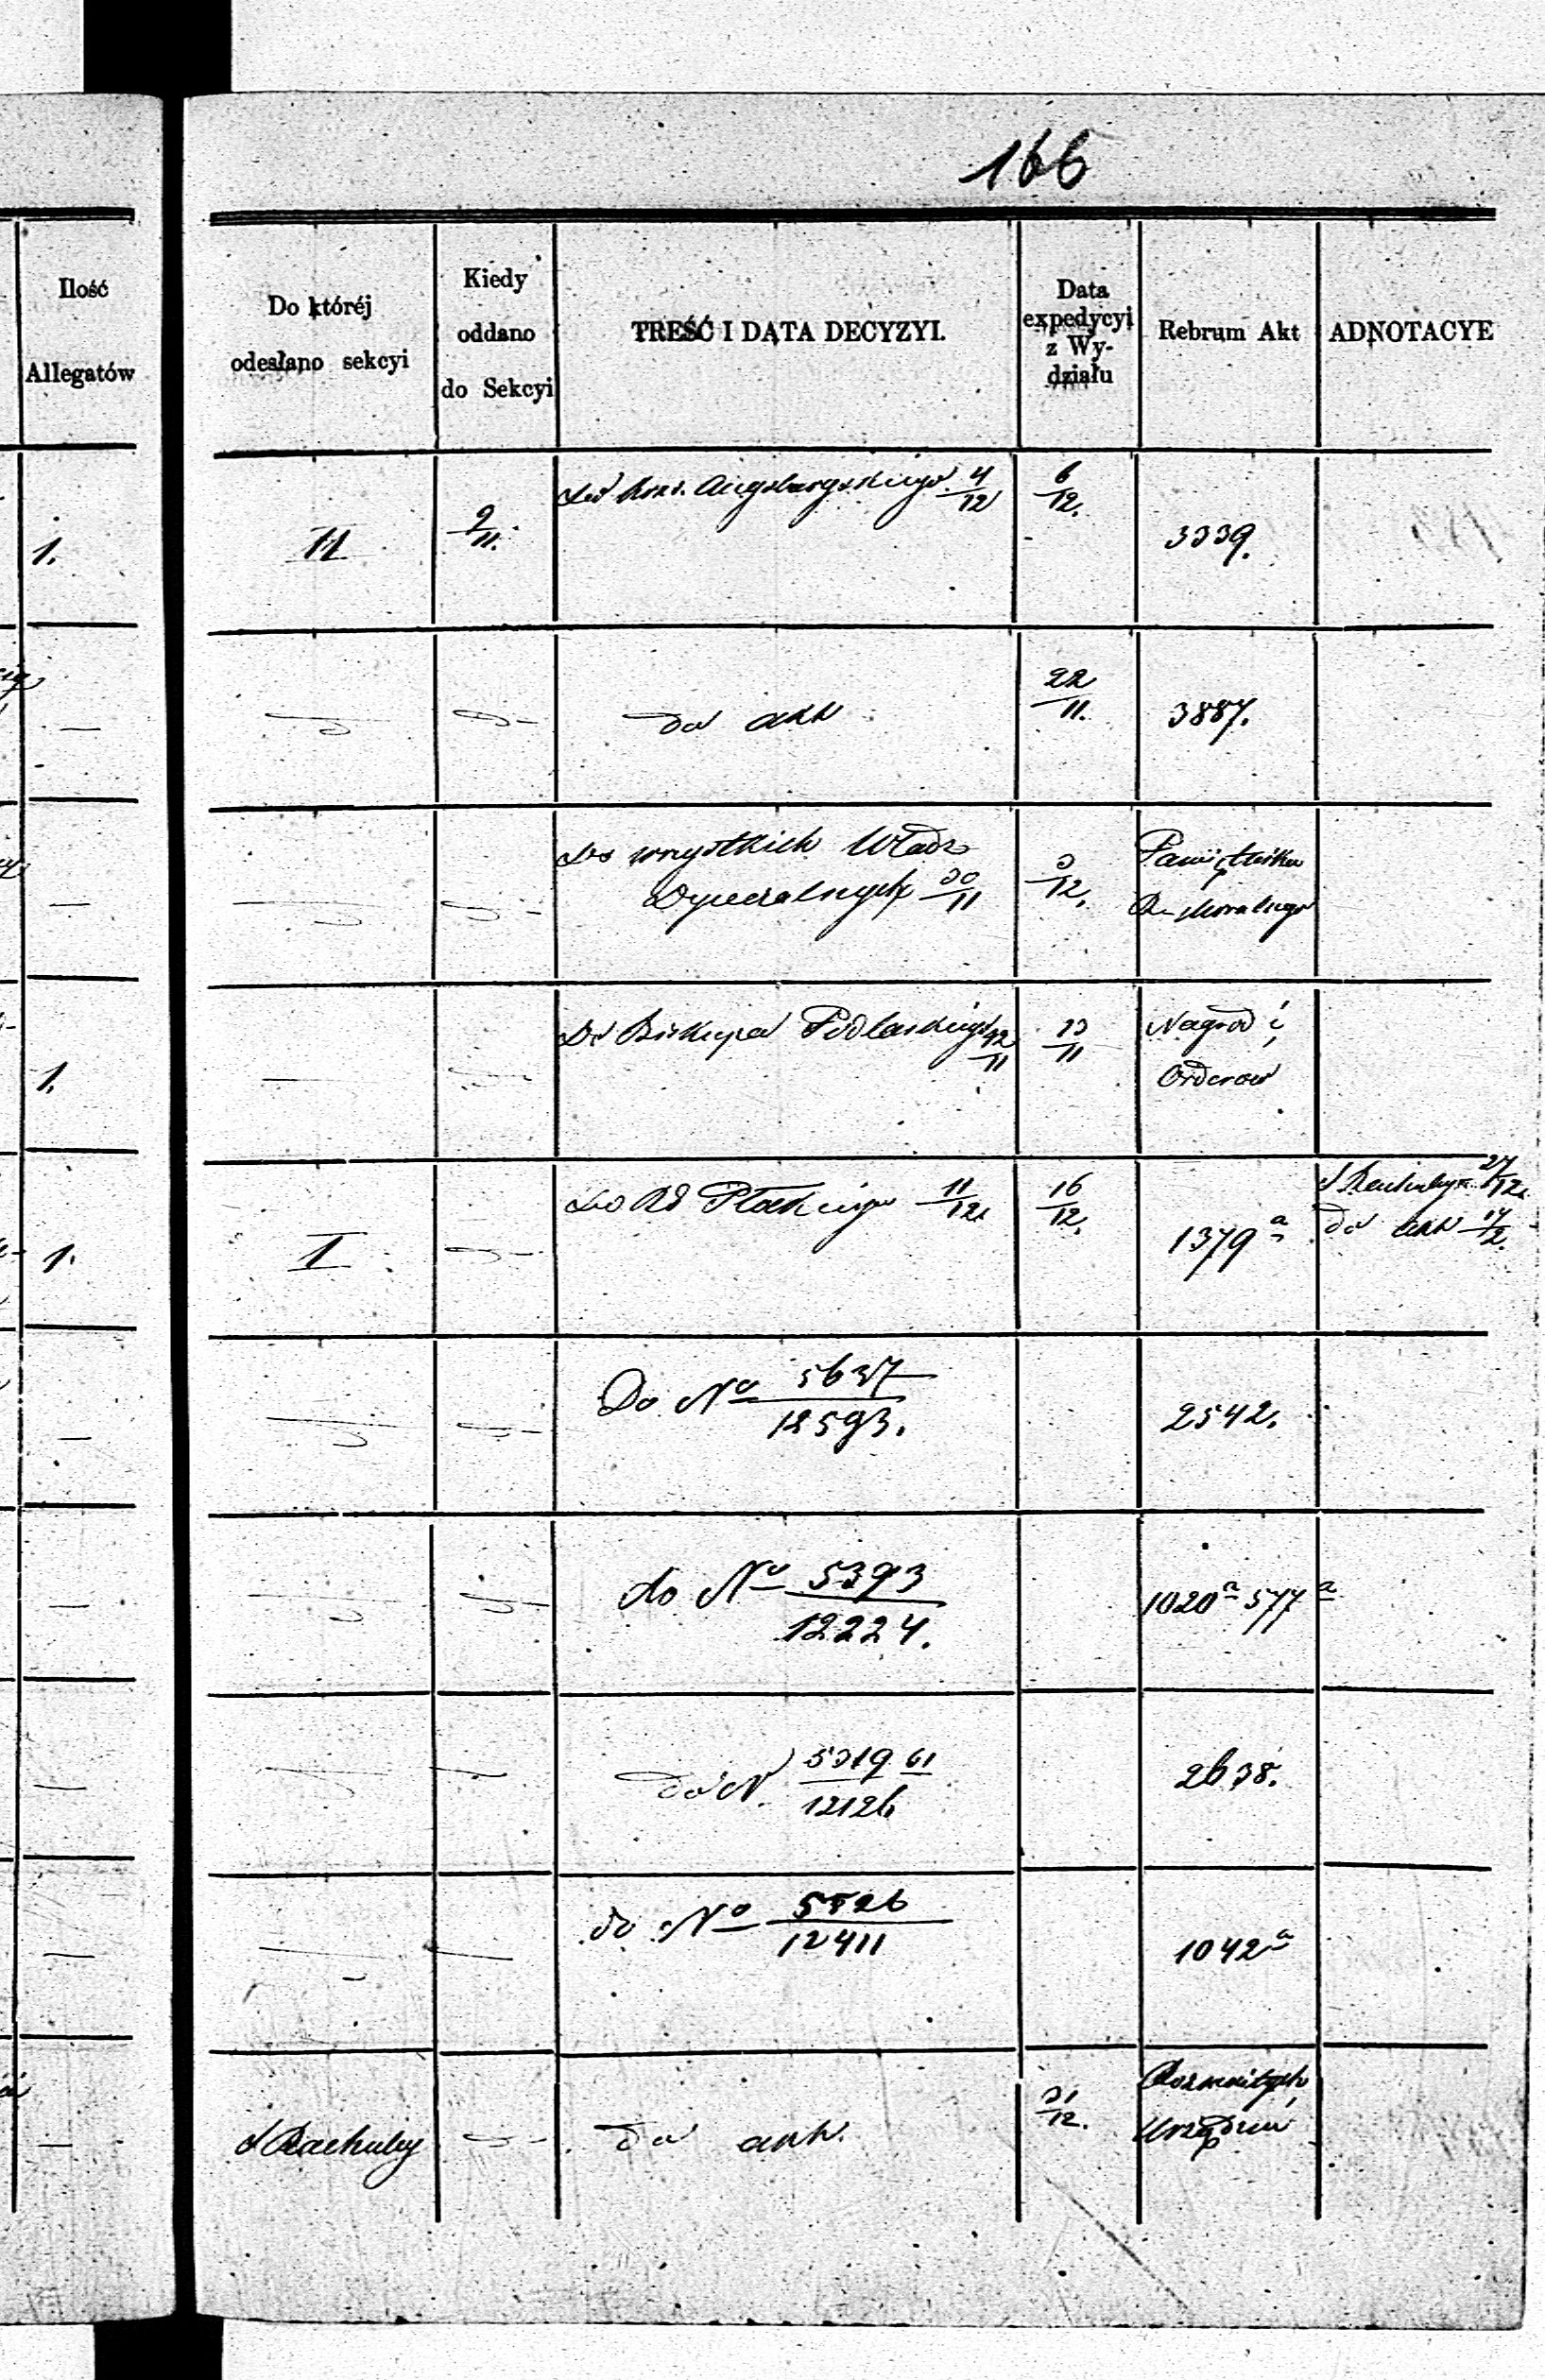 166
Ilość
Allegatów
Do któréj
odesłano sekcyi
Kiedy
oddano
do Sekcyi
TREŚĆ I DATA DECYZYI.
Data
expedycyi
z Wy-
działu
Rebrum Akt
ADNOTACYE
1.
II
9/11.
Do Kons. Augsburgskiego 4/12
6/12.
3339.
—
do akt
22/11.
3887.
—
Do wszystkich Władz
Dyecezalnych 30/11
3/12.
Pamiętnika
Moralnego
1.
—
Do Biskupa Podlaskiego 12/11
13/11
Nagrod i
Orderow
1.
I
Do Płockiego 11/12
16/12.
1379 a
27/12
do akt 14/2.
—
Do No 5637/12593.
2542.
—
do No 5393/12224.
1020 a 577 a
—
do N. 5319 61/12126
2638.
—
do No 5526/12411
1042 a
—
Rachuby
do akt.
31/12.
Rozmaitych
Urządzeń